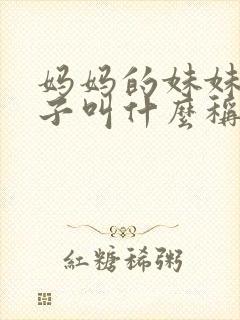 妈妈的妹妹
子叫什麼稱
紅糖稀粥